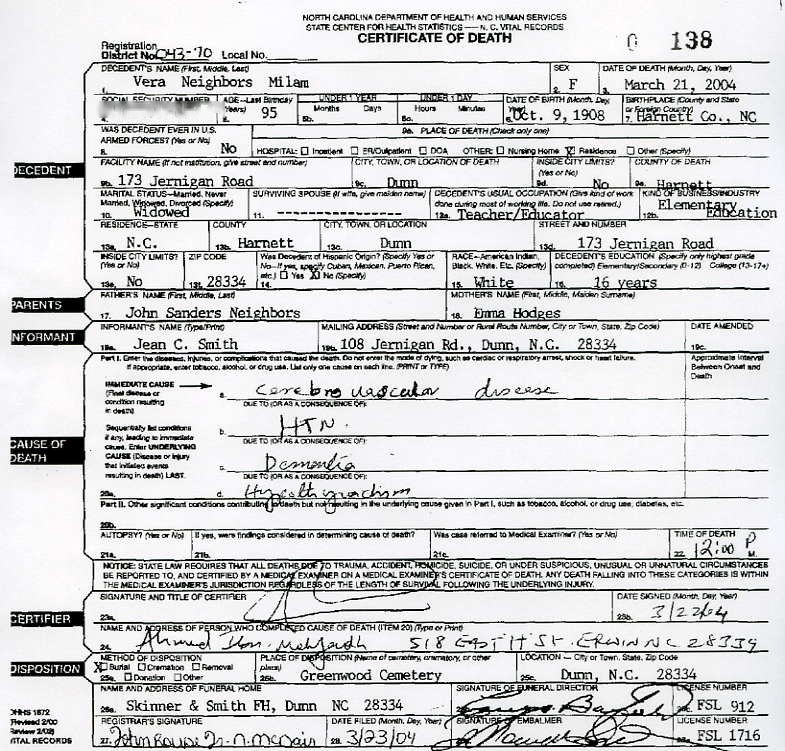 NORTH CAROLINA DEPARTMENT OF HEALTH AND HUMAN SERVICES
STATE CENTER FOR HEALTH STATISTICS — N. C. VITAL RECORDS
CERTIFICATE OF DEATH
Registration
District No. 043-70 Local No.
0 138
DECEDENT'S NAME (First, Middle, Last) SEX DATE OF DEATH (Month, Day, Year)
1. Vera Neighbors Milam 2. F 3. March 21, 2004
SOCIAL SECURITY NUMBER AGE—Last Birthday UNDER 1 YEAR UNDER 1 DAY DATE OF BIRTH (Month, Day, Year) BIRTHPLACE (County and State or Foreign Country)
(Years) Months Days Hours Minutes
4. 5. 95 5b. 5c. 6. Oct. 9, 1908 7. Harnett Co., NC
WAS DECEDENT EVER IN U.S. 9a. PLACE OF DEATH (Check only one)
ARMED FORCES? (Yes or No)
8. No HOSPITAL: Inpatient ER/Outpatient DOA OTHER: Nursing Home X Residence Other (Specify)
DECEDENT
FACILITY NAME (If not institution, give street and number) CITY, TOWN, OR LOCATION OF DEATH INSIDE CITY LIMITS? (Yes or No) COUNTY OF DEATH
9b. 173 Jernigan Road 9c. Dunn 9d. No 9e. Harnett
MARITAL STATUS—Married, Never Married, Widowed, Divorced (Specify) SURVIVING SPOUSE (If wife, give maiden name) DECEDENT'S USUAL OCCUPATION (Give kind of work done during most of working life. Do not use retired.) KIND OF BUSINESS/INDUSTRY
10. Widowed 11. -------------- 12a. Teacher/Educator 12b. Elementary Education
RESIDENCE—STATE COUNTY CITY, TOWN, OR LOCATION STREET AND NUMBER
13a. N.C. 13b. Harnett 13c. Dunn 13d. 173 Jernigan Road
INSIDE CITY LIMITS? (Yes or No) ZIP CODE Was Decedent of Hispanic Origin? (Specify Yes or No—If yes, specify Cuban, Mexican, Puerto Rican, etc.) Yes X No (Specify) RACE—American Indian, Black, White, Etc. (Specify) DECEDENT'S EDUCATION (Specify only highest grade completed) Elementary/Secondary (0-12) College (13-17+)
13e. No 13f. 28334 14. 15. White 16. 16 years
PARENTS
FATHER'S NAME (First, Middle, Last) MOTHER'S NAME (First, Middle, Maiden Surname)
17. John Sanders Neighbors 18. Emma Hodges
INFORMANT
INFORMANT'S NAME (Type/Print) MAILING ADDRESS (Street and Number or Rural Route Number, City or Town, State, Zip Code) DATE AMENDED
19a. Jean C. Smith 19b. 108 Jernigan Rd., Dunn, N.C. 28334 19c.
Part I. Enter the diseases, injuries, or complications that caused the death. Do not enter the mode of dying, such as cardiac or respiratory arrest, shock or heart failure.
If appropriate, enter tobacco, alcohol, or drug use. List only one cause on each line. (PRINT or TYPE)
Approximate Interval Between Onset and Death
IMMEDIATE CAUSE
(Final disease or condition resulting in death)
a. Cerebro vascular disease
DUE TO (OR AS A CONSEQUENCE OF):
Sequentially list conditions if any, leading to immediate cause. Enter UNDERLYING CAUSE (Disease or injury that initiated events resulting in death) LAST.
b. HTN.
DUE TO (OR AS A CONSEQUENCE OF):
CAUSE OF DEATH
c. Dementia
DUE TO (OR AS A CONSEQUENCE OF):
20a. d.
Part II. Other significant conditions contributing to death but not resulting in the underlying cause given in Part I, such as tobacco, alcohol, or drug use, diabetes, etc.
20b.
AUTOPSY? (Yes or No) If yes, were findings considered in determining cause of death? Was case referred to Medical Examiner? (Yes or No) TIME OF DEATH
21a. 21b. 21c. 22. 12:00 P M.
NOTICE: STATE LAW REQUIRES THAT ALL DEATHS DUE TO TRAUMA, ACCIDENT, HOMICIDE, SUICIDE, OR UNDER SUSPICIOUS, UNUSUAL OR UNNATURAL CIRCUMSTANCES
BE REPORTED TO, AND CERTIFIED BY A MEDICAL EXAMINER ON A MEDICAL EXAMINER'S CERTIFICATE OF DEATH. ANY DEATH FALLING INTO THESE CATEGORIES IS WITHIN
THE MEDICAL EXAMINER'S JURISDICTION REGARDLESS OF THE LENGTH OF SURVIVAL FOLLOWING THE UNDERLYING INJURY.
CERTIFIER
SIGNATURE AND TITLE OF CERTIFIER DATE SIGNED (Month, Day, Year)
23a. 23b. 3/22/04
NAME AND ADDRESS OF PERSON WHO COMPLETED CAUSE OF DEATH (ITEM 20) (Type or Print)
24. Ahmed 518 EAST H ST. ERWIN NC 28339
DISPOSITION
METHOD OF DISPOSITION PLACE OF DISPOSITION (Name of cemetery, crematory, or other place) LOCATION — City or Town, State, Zip Code
X Burial Cremation Removal
25a. Donation Other 25b. Greenwood Cemetery 25c. Dunn, N.C. 28334
NAME AND ADDRESS OF FUNERAL HOME SIGNATURE OF FUNERAL DIRECTOR LICENSE NUMBER
26a. Skinner & Smith FH, Dunn NC 28334 FSL 912
DHHS 1872
Revised 2/00
Review 2/02
VITAL RECORDS
REGISTRAR'S SIGNATURE DATE FILED (Month, Day, Year) SIGNATURE OF EMBALMER LICENSE NUMBER
27. 28. 3/23/04 FSL 1716